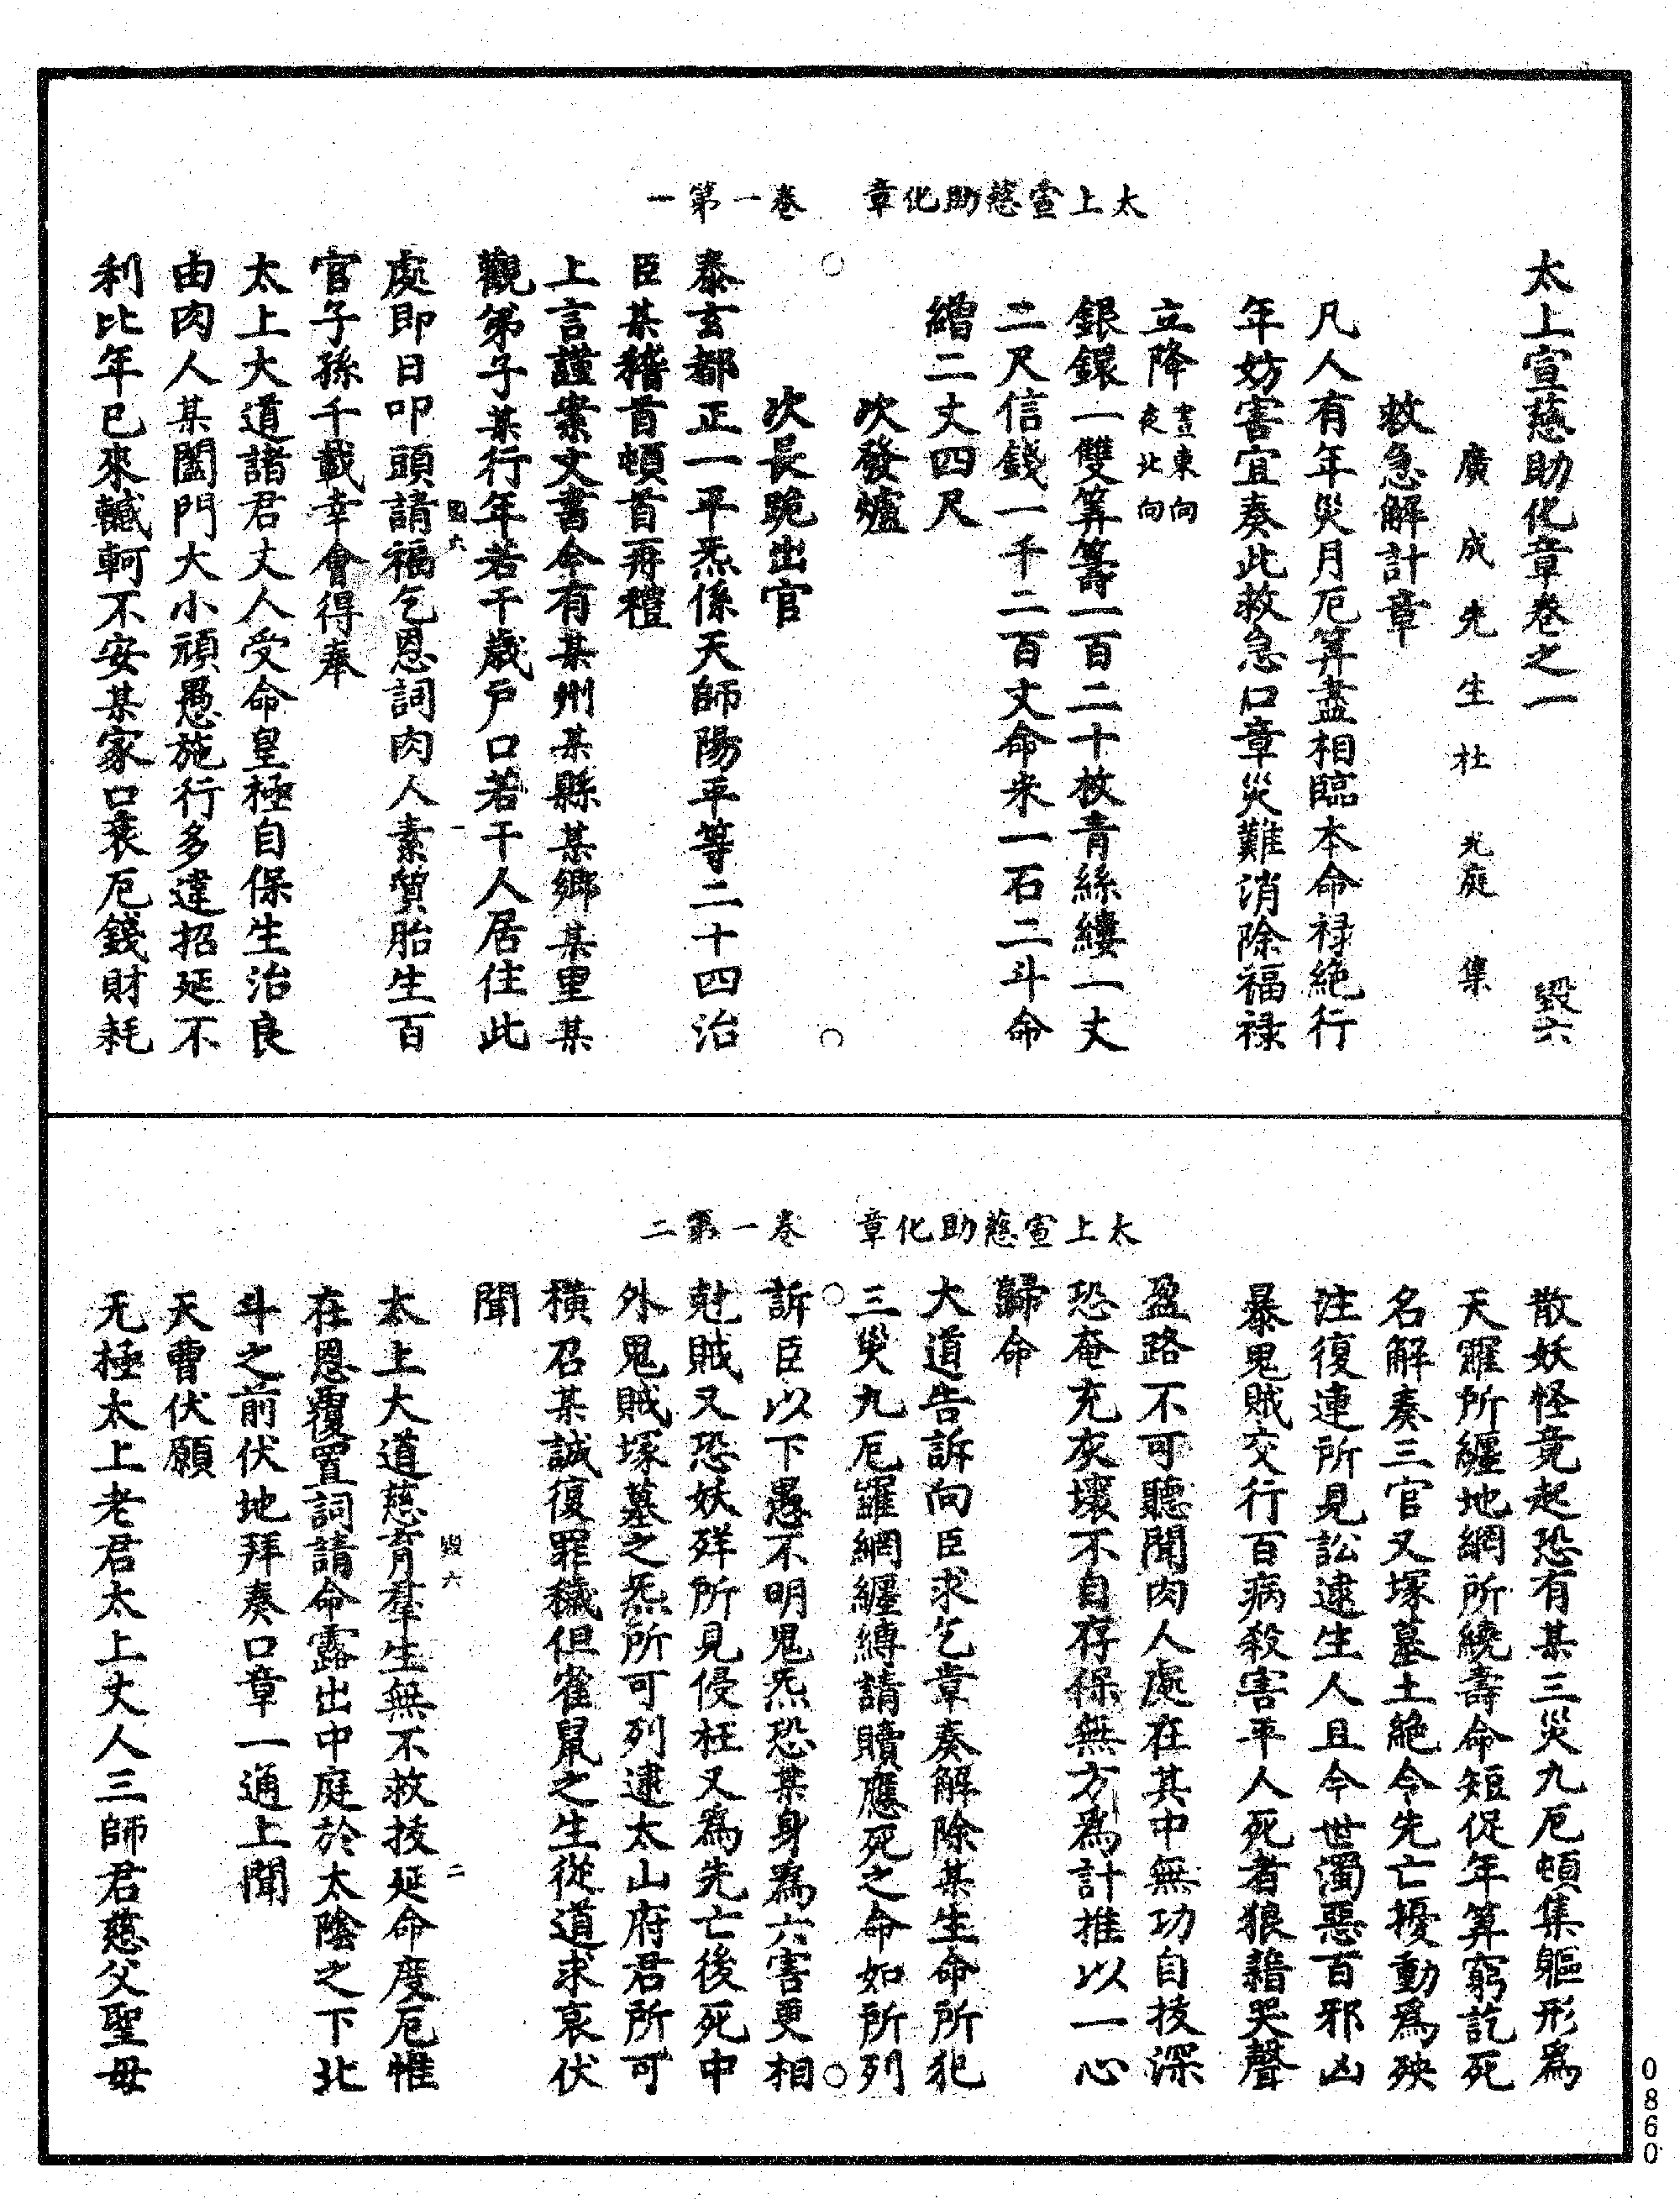 太上宣慈助化章　卷一第一
太上宣慈助化章卷之一　毀六
廣成先生杜光庭集
救急解計章
凡人有年災月厄筭盡相臨本命祿絕行
年妨害宜奏此救急口章災難消除福祿
立降晝東向夜北向
銀鐶一雙筭籌一百二十枚青絲縷一丈
二尺信錢一千二百文命米一石二斗命
繒二丈四尺
次發爐
次長跪出官
泰玄都正一平炁係天師陽平等二十四治
臣某稽首頓首再禮
上言謹案文書今有某州某縣某鄉某里某
觀弟子某行年若干歲戶口若干人居住此
毀六　一
處即日叩頭請福乞恩詞肉人素質胎生百
官子孫千載幸會得奉
太上大道諸君丈人受命皇極自保生治良
由肉人某闔門大小頑愚施行多違招延不
利比年已來轗軻不安某家口衰厄錢財耗
太上宣慈助化章　卷一第二
散妖怪竟起恐有某三災九厄頓集軀形爲
天羅所纏地網所繞壽命短促年筭窮訖死
名解奏三官又塚墓土絕令先亡擾動爲殃
注復連所見訟逮生人且今世濁惡百邪凶
暴鬼賊交行百病殺害平人死者狼藉哭聲
盈路不可聽聞肉人處在其中無功自拔深
恐奄充灰壞不自存保無方爲計推以一心
歸命
大道告訴向臣求乞章奏解除某生命所犯
三災九厄羅網纏縛請贖應死之命如所列
訴臣以下愚不明鬼炁恐某身爲六害更相
剋賊又恐妖殃所見侵枉又爲先亡後死中
外鬼賊塚墓之炁所可列逮太山府君所可
橫召某誠復罪穢但雀鼠之生從道求哀伏
聞
毀六　二
太上大道慈育羣生無不救拔延命度厄惟
在恩覆置詞請命露出中庭於太陰之下北
斗之前伏地拜奏口章一通上聞
天曹伏願
无極太上老君太上丈人三師君慈父聖母
0860